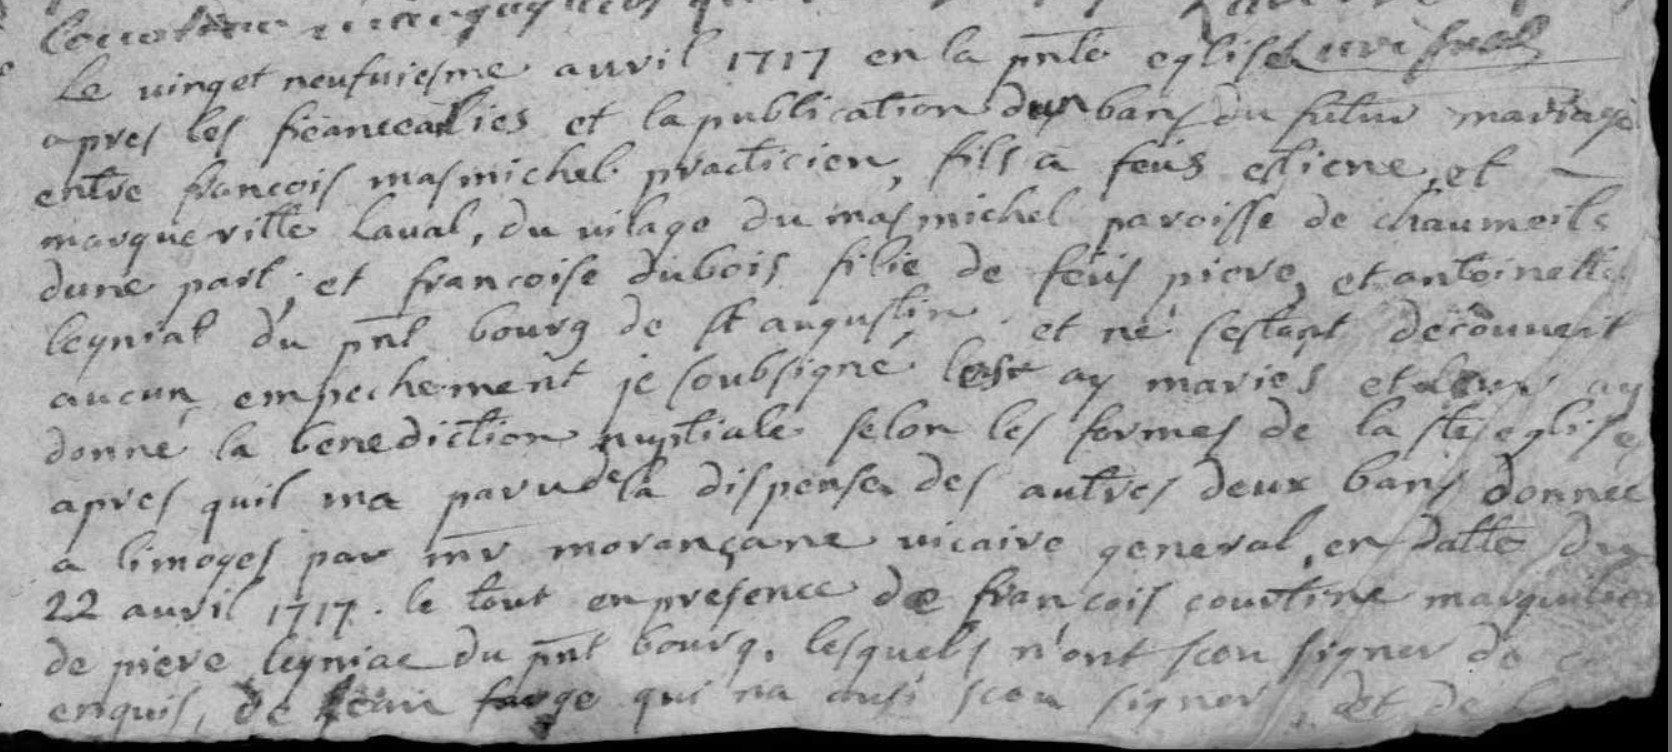 Le vinget neufuiesme auvril 1717 en la pnte eglise
apres les fiancealies et la publication dun bans du futur mariage
entre francois masmichel practicien, fils a feus estiene et
marque ritte Laual, du vilage du masmichel paroisse de chaumeils
dune part, et francoise dubois filie de feus piere, et antoinette
leyniat du pnt bourg de st augustin et ne sestant decouuert
aucun empechement je soubsigné les ay mariés et leur ay
donné la benediction nuptiale selon les formes de la ste eglise
apres quil ma paru de la dispense des autres deux bans donnee
a limoges par mr morançane vicaire general, en datte du
22 auvril 1717. le tout en presence de françois courtine marguilier
de piere leyniac du pnt bourg, lesquels n'ont sceu signer de
enquis, de jean farge qui na ausi sceu signer et de